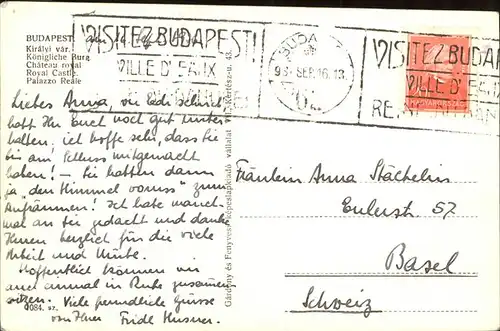 BUDAPEST.
Királyi vár.
Königliche Burg
Château royal
Royal Castle.
Palazzo Reale
VISITEZ BUDAPEST!
VILLE D'EAUX
BUDA
93 SEP. 16. 18
VISITEZ BUDA
VILLE D'E
RE
Liebes Anna,
habt Ihr Euch noch gut unter-
halten, ich hoffe sehr, dass Sie
bis am Schluss mitgemacht
haben! – Sie hatten dann
ja "den Himmel voraus" zum
Aufräumen! Ich habe manch-
mal an Sie gedacht und danke
Ihnen herzlich für die viele
Arbeit und Mühe.
Hoffentlich können wir
auch einmal in Ruhe zusammen
sitzen. Viele freundliche Grüsse
von Ihrer Fridl Husner.
Fräulein Anna Stächelin
Eulerstr. 57
Basel
Schweiz
Gárdony és Fenyvesi képeslapkiadó vállalat VI., Kertész-u. 43.
084. sz.